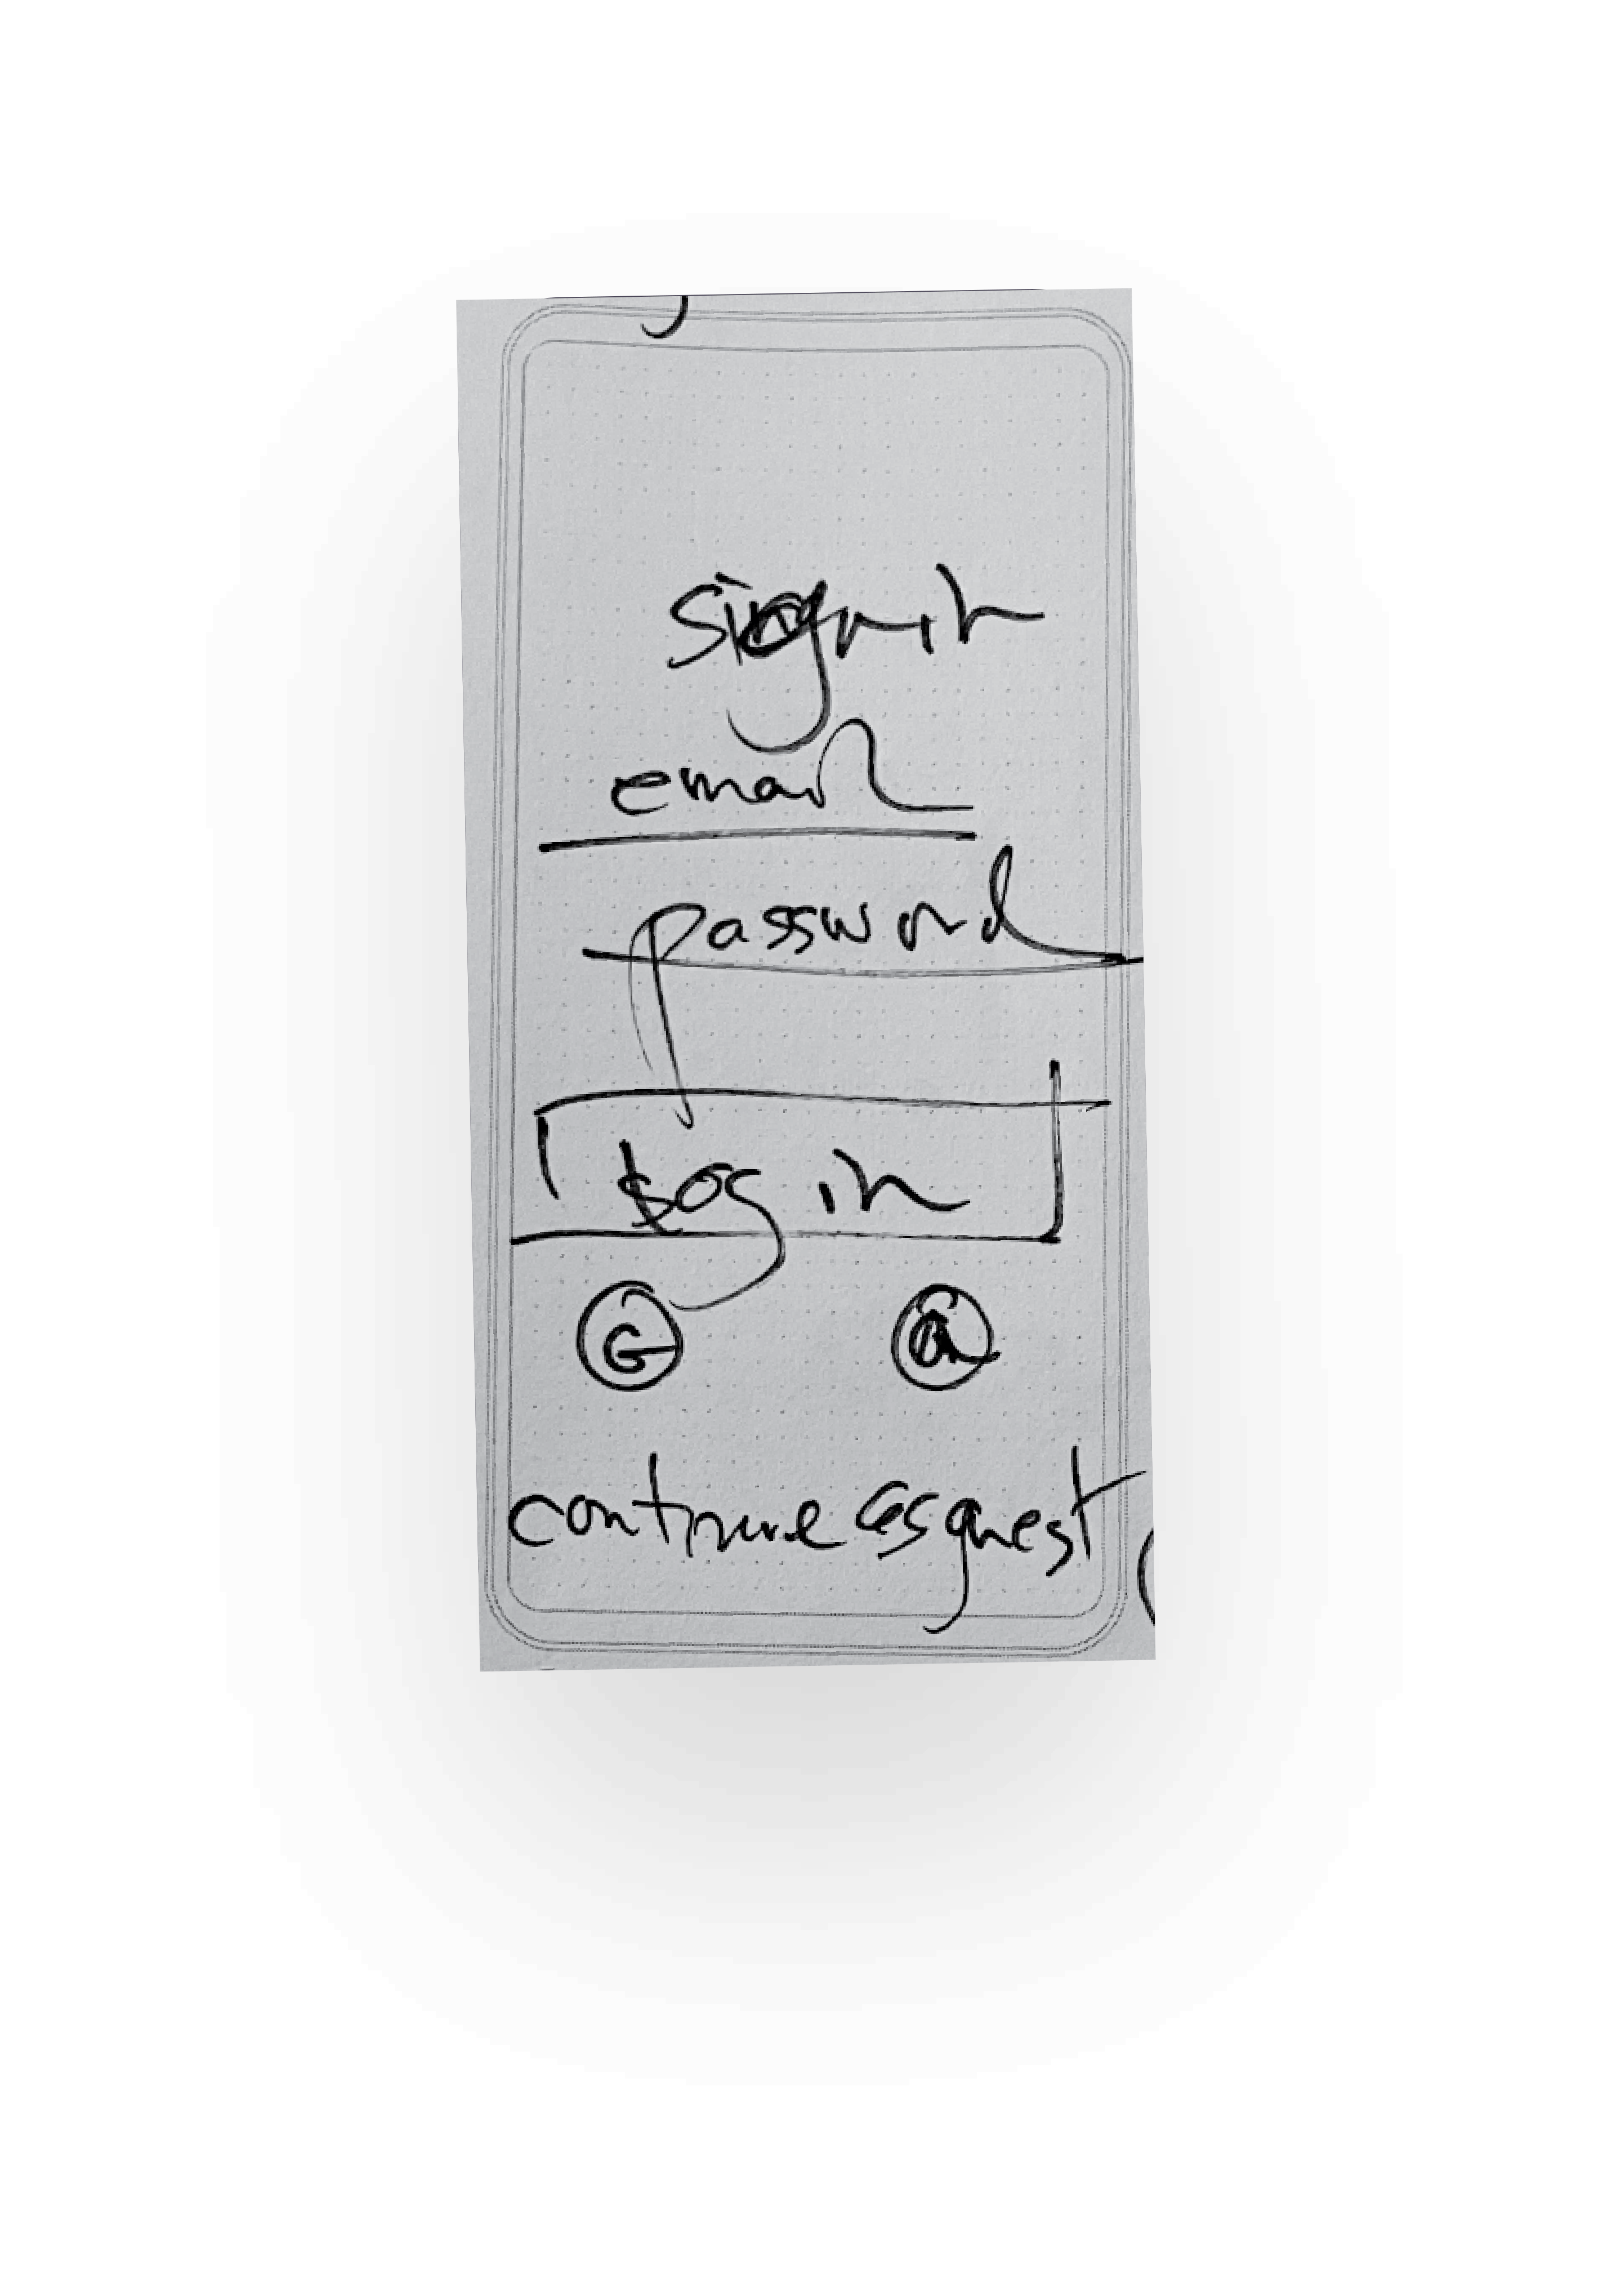 sign in
email
password
Log in
G
continue as guest